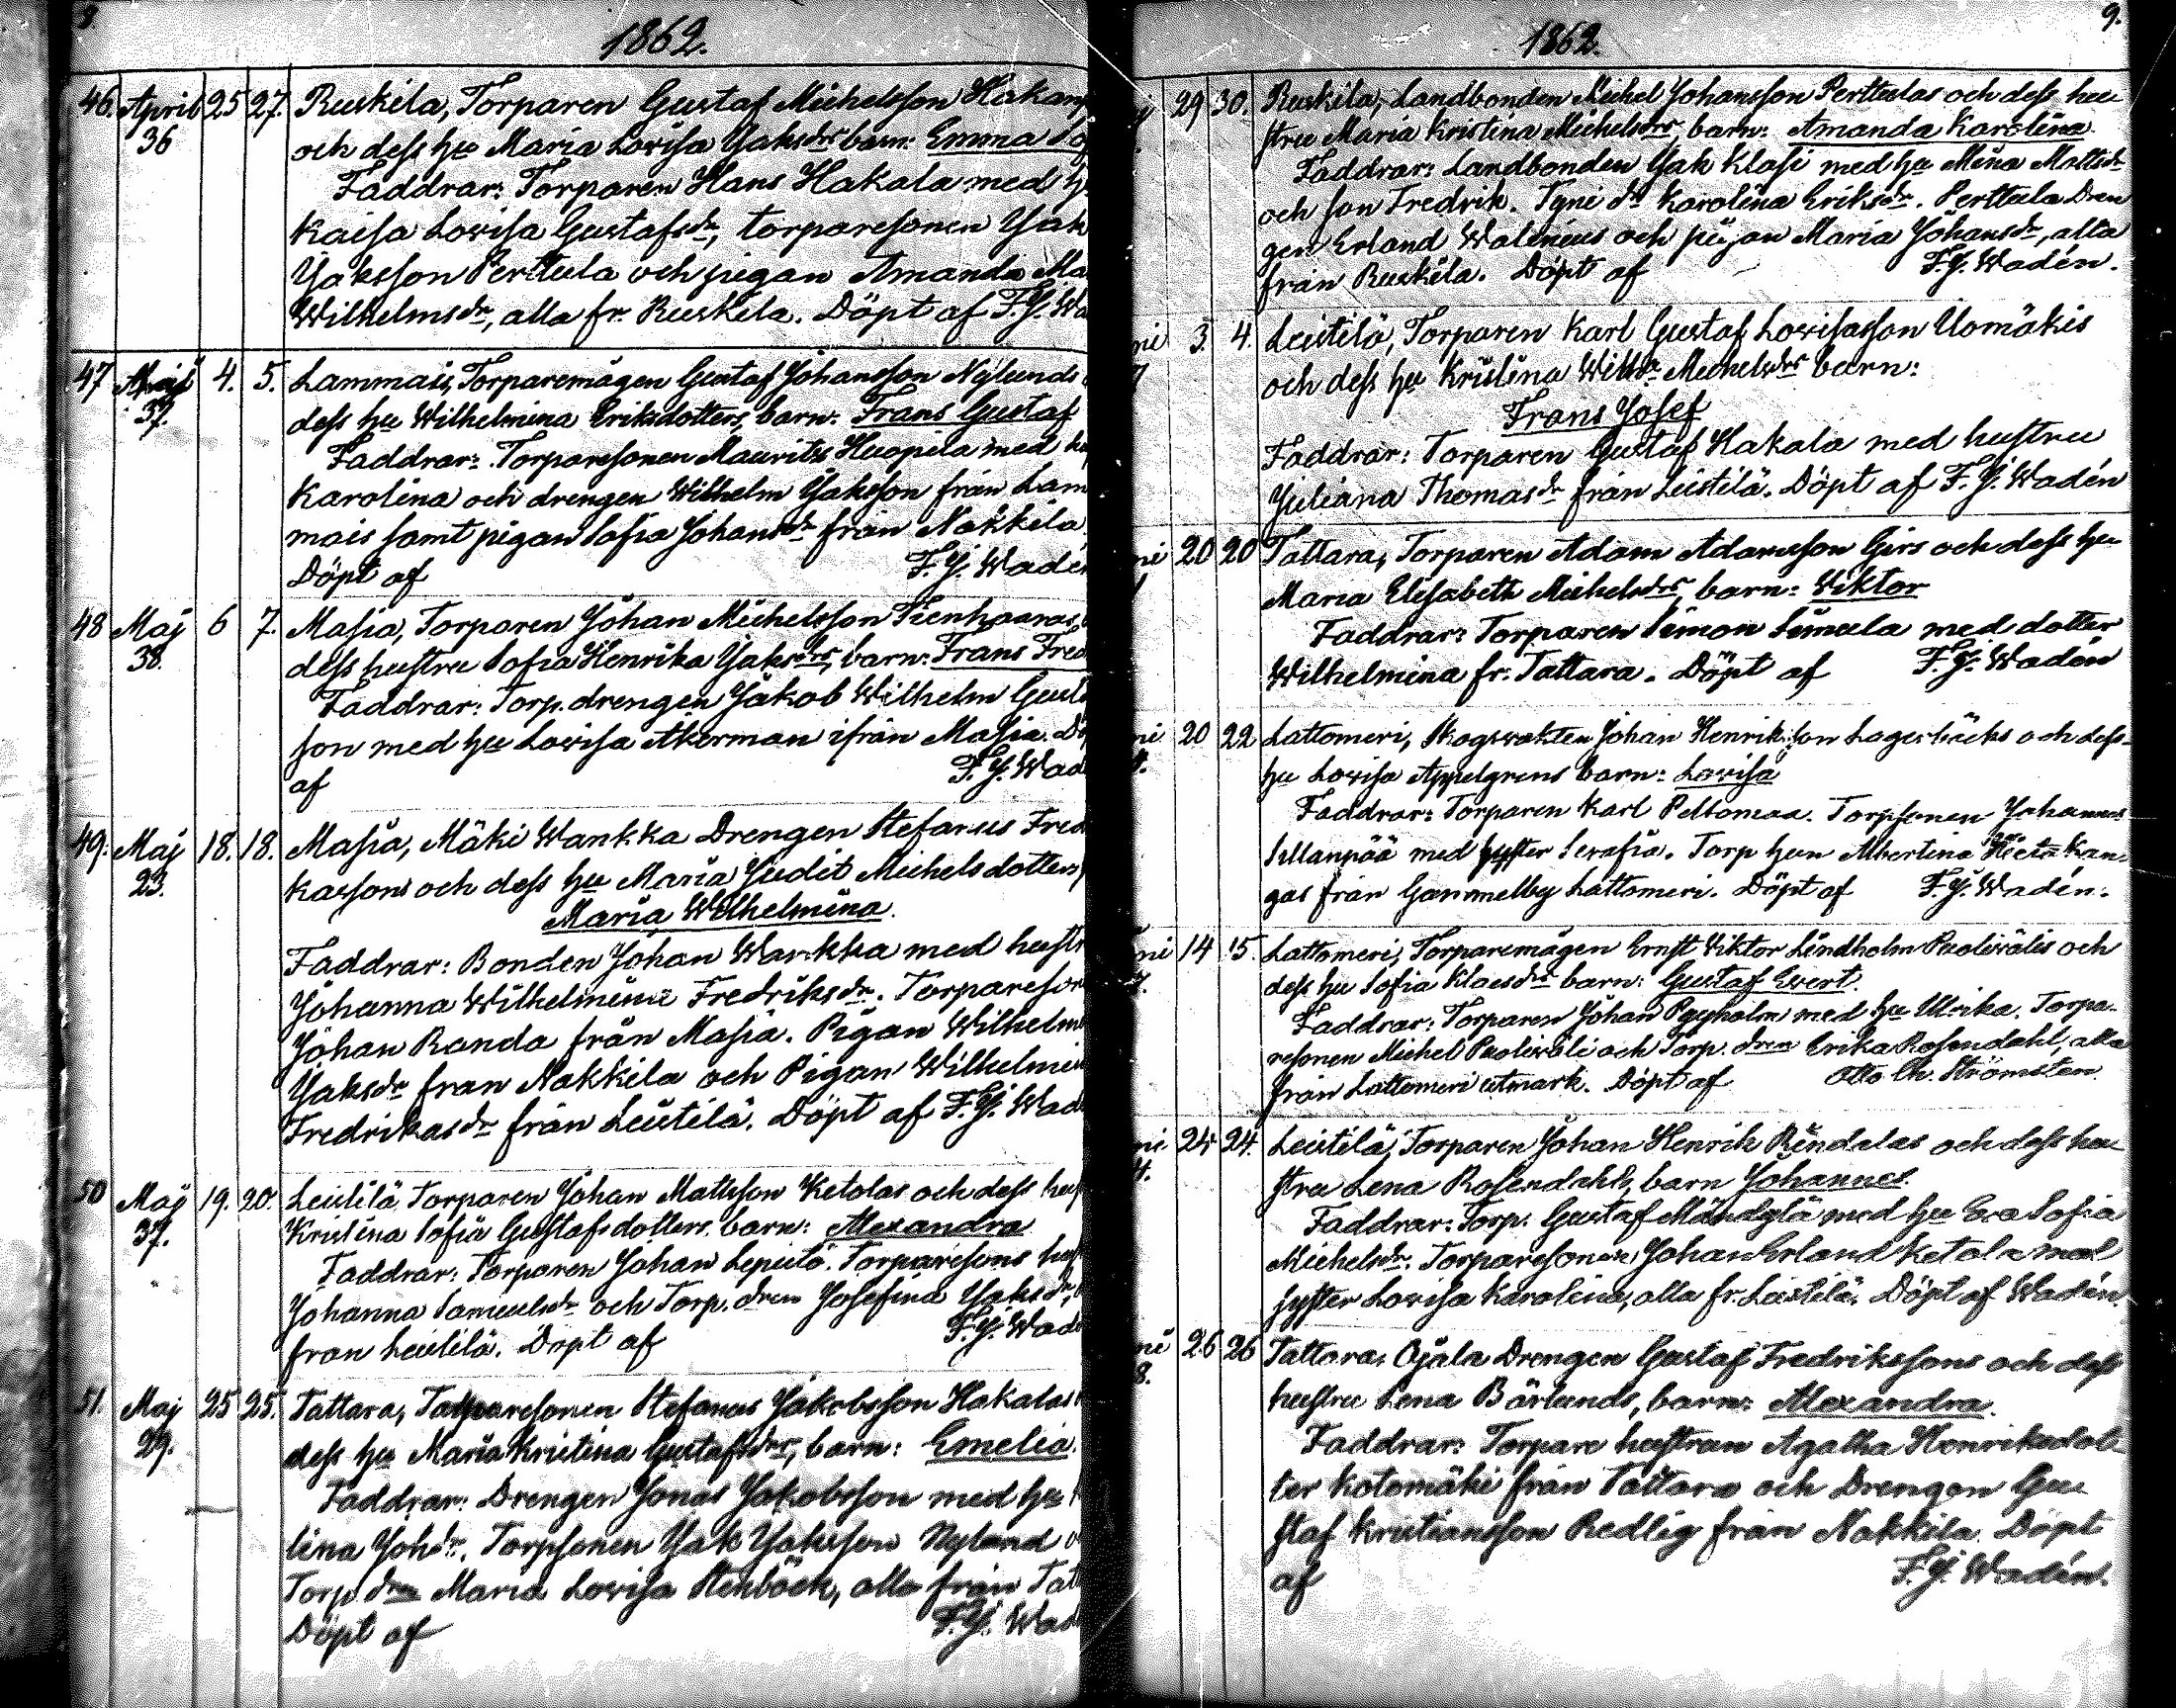 8.
1862.
46. April 25 27. Ruskila, Torparen Gustaf Michelsson Hakan
36 och dess hu Maria Lovisa Jaksdrs barn: Emma
Faddrar: Torparen Hans Hakala med
Kaisa Lovisa Gustafsdr, torparesonen Jak
Jaksson Perttula och pigan Amanda Ma
Wilhelmsdr, alla fr. Ruskila. Döpt af F.J. Wa
47 4. 5. Lammais, Torparemågen Gustaf Johansson Nylunds
37. dess hu Wilhelmina Eriksdotters, barn: Frans Gustaf
Faddrar: Torparesonen Mauritz Huopila med
Karolina och drengen Wilhelm Jaksson från Lam
mais samt pigan Sofia Johansdr från Nakkila
Döpt af F.J. Wadén
48 Maj 6 7. Masia, Torparen Johan Michelsson
38. dess hustru Sofia Henrika Jaksdrs, barn: Frans Fred
Faddrar: Torp. drengen Jakob Wilhelm Gust
son med hu Lovisa Åkerman ifrån Masia. Dö
af F.J. Wad
49. Maj 18. 18. Masia, Mäki Wankka Drengen Stefanus Fred
23. kassons och dess hu Maria Judit Michelsdotters,
Maria Wilhelmina.
Faddrar: Bonden Johan Wankka med hustr
Johanna Wilhelmina Fredriksdr. Torpareson
Johan Randa från Masia. Pigan Wilhelm
Jaksdr från Nakkila och Pigan Wilhelmin
Fredrikasdr från Leistilä. Döpt af F.J. Wad
50 Maj 19. 20. Leistilä, Torparen Johan Mattsson Ketolas och dess hus
37. Kristina Sofia Gustafsdotters, barn: Alexandra
Faddrar: Torparen Johan Torparesons hus
Johanna Samuelsdr och Torp. dren Josefina Jaksdr,
från Leistilä. Döpt af F.J. Wad
51. Maj 25 25. Tattara, Torparesonen Stefanus Jakobsson Hakalas
29. dess hu Maria Kristina Gustafsdrs, barn: Emelia.
Faddrar: Drengen Jonas Jakobsson med hu
lina Johdr. Torpsonen Jak Jaksson Nylund
Torp. dren Maria Lovisa Stenbäck, alla från Tatt
Döpt af F.J. Wad
9.
1862.
29 30. Ruskila, Landbonden Michel Johansson Perttulas och dess hu
stru Maria Kristina Michelsdrs, barn: Amanda Karolina.
Faddrar: Landbonden Jak Klasi med hu Mina Mattsdr
och son Fredrik. Karolina Eriksdr. Perttula Dren
gen Erland Walenius och pigan Maria Johansdr, alla
från Ruskila. Döpt af F.J. Wadén.
ni 3. 4. Leistilä, Torparen Karl Gustaf Lovisasson Uomäkis
och dess hu Kristina Michelsdrs barn:
Frans Josef
Faddrar: Torparen Gustaf Hakala med hustru
Juliana Thomasdr från Leistilä. Döpt af F.J. Wadén
ni 20 20 Tattara, Torparen Adam Adamsson Girs och dess hu
Maria Elisabeth Michelsdrs, barn: Viktor
Faddrar: Torparen Simon Simula med dotter
Wilhelmina fr. Tattara. Döpt af F.J. Wadén
ni 20 22 Lattomeri, Skogvakten Johan Henriksson Lagerbäcks och dess
hu Lovisa Appelgrens barn: Lovisa
Faddrar: Torparen Karl Peltomaa. Torpsonen Johannes
Sillanpää med syster Serafia. Torp hun Albertina Hietakan-
gas från Gammelby Lattomeri. Döpt af F.J. Wadén.
ni 14 15. Lattomeri, Torparemågen Ernst Viktor Lindholm Puolivälis och
7. dess hu Sofia Klasdrs barn: Gustaf Evert.
Faddrar: Torparen Johan med hu Ulrika. Torpa-
resonen Michel Puoliväli och Torp. dren Erika Rosendahl, alla
från Lattomeri utmark. Döpt af Otto Ch. Strömsten
ni 24 24. Leistilä, Torparen Johan Henrik Rindalas och dess hu
4. stru Lena Rosendahls, barn Johannes.
Faddrar: Torp. Gustaf Mändylä med hu Eva Sofia
Michelsdr. Torparesonen Johan Erland Ketola med
syster Lovisa Karolina, alla fr. Leistilä. Döpt af Wadén.
ni 26 26 Tattara, Ojala Drengen Gustaf Fredrikssons och dess
8. hustru Lena Bärlunds, barn: Alexandra.
Faddrar: Torpare hustrun Agatha Henriksdot-
ter Kotomäki från Tattara och Drengen Gu
staf Kristiansson Redlig från Nakkila. Döpt
af F.J. Wadén.